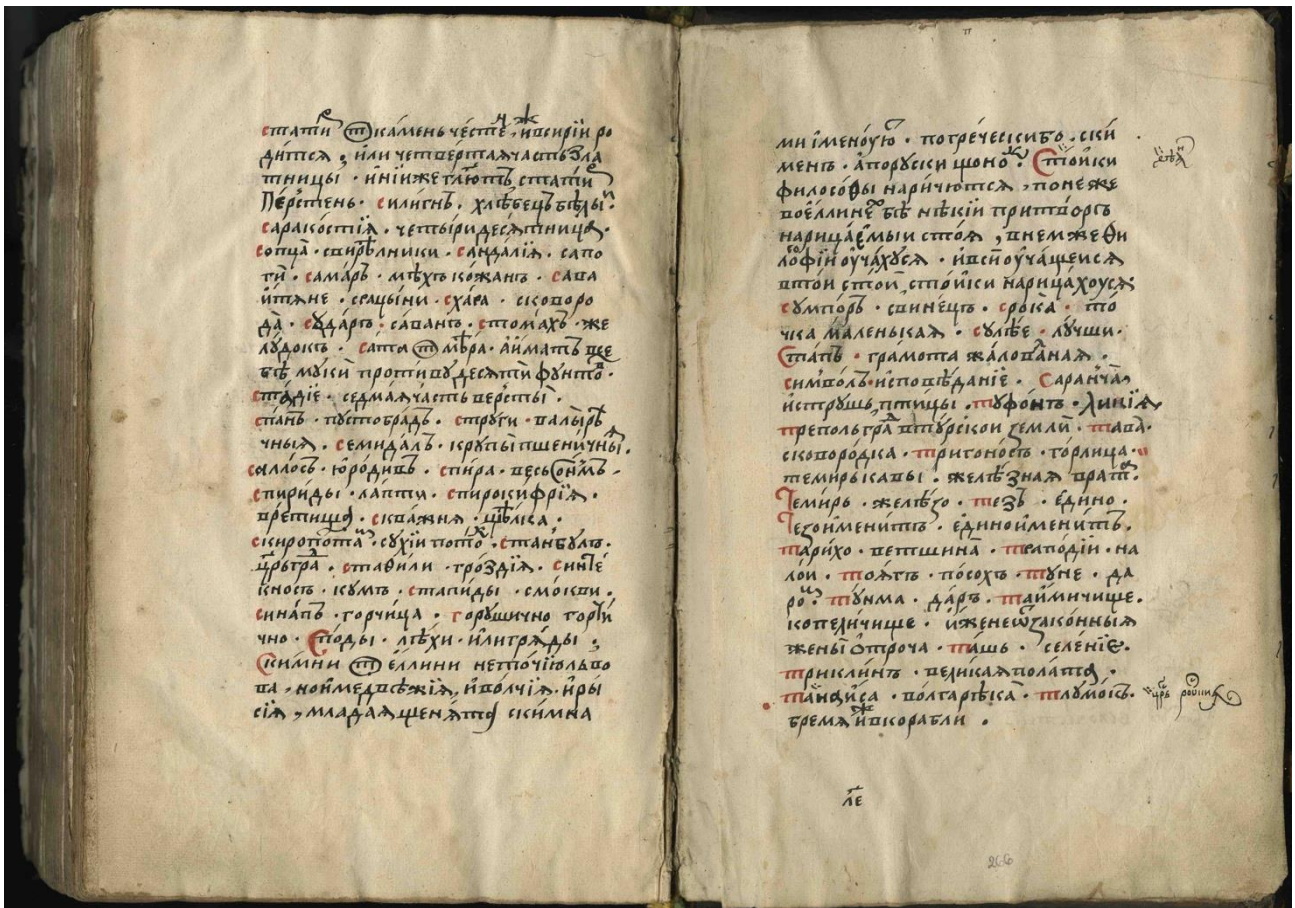 статиⷬ҇ ѿ ка́мень че́стеⷩ҇, иⷤ в сирі́и ро
ди́тся, и́ли четве́ртая часть зла
тни́цы · ині́и же гл҃ютъ стати́ⷬ
Пе́рстень · силигнъ · хлѣ́бецъ бѣ́лыⷨ ·
саракостїѧ · четы́ридесѧтница ·
сопца̀ · свирѣ́лники · санда́лїѧ · сапо
ги̂ · сама́ръ · мѣ́хъ ко́жанъ · сава
и́тѧне · срацы́ни · сха́ра · сковоро
да̀ · суда́ръ · сава́нъ · стома́хъ · же
лу́докъ · сапта ѿ мѣра · а́ имать все
бѣ муки проти́ву десѧти́ фунто́ⷡ ·
ста́дїе · седма́ѧ часть версты̀ ·
спа́нъ · пустобра́дъ · струги · валы́ рѣ
чныѧ · семида́лъ · крупы̀ пшени́чныѧ ·
са́ллосъ · ю҆ро́дивъ · спира · весь со́нмъ ·
спири́ды · ла́пти · спирокифрі́ѧ ·
вре́тища · сква́жнѧ · щѣ́лка ·
скиропота̀ · сухі́и пото́ⷦ · станбу́лъ ·
цр҃ьгра́ⷣ · стаби́ли · гро́здїѧ · синте́
кносъ · кумъ · стапи́ды · смо́кви ·
сина́пъ · горчи́ца · горушично горчи́
чно · Споды · лѣ́хи · и́ли грѧ́ды ·
Скимни ѿ е́ллини не то́чїю льво
ва, но и҆ медвѣ́жїѧ, и҆ во́лчїѧ · и҆ ры
сїѧ, млада́ѧ щенѧ́та скимна
ми имену́юⷮ · по гре́чески бо · ски́
менъ · а҆ по руски щоно́ⷦ · Сто́ики
филосо́фы нарию́тсѧ, поне́же
во е҆́ллинеⷯ бѣ̀ нѣ́кїи притво́ръ
нарица́емыи сто́ѧ, в не́м же фи
ло́софїи оу҆ча́хусѧ · и҆ вси̂ оу҆ча́щеисѧ
в то́и сто́и, сто́иси нарица́хоусѧ
сумпо́ръ · свине́цъ · сро́ка · то́
чка ма́ленькаѧ · сулѣ́е · лу́чши ·
Ста́пъ · гра́мота жа́лованнаѧ ·
си́мволъ · и҆сповѣ́данїе · Саранча̀
и҆ стру́шь, пти́цы · туфо́нъ · ли́нїѧ
препо́льгра́ⷣ в ту́рскои земли̂ · тава̀ ·
сковоро́дка · тригоно́съ · го́рлица ·
темирькапы · желѣ́знаѧ врата̀ ·
Темирь · желѣ́зо · тезъ · е҆ди́но ·
Тезоимени́тъ · е҆диноимени́тъ ·
тари́хо · ветшина̀ · трапо́дїи · на
лои · тоѧ́гъ · по́сохъ · туне · да
ро́ⷨ · ту́нма · да́ръ · таи́мичище ·
копели́чище · и҆́же не ѿ зако́нныѧ
жены̀ ѻ҆троча · та́шь · селе́нїе ·
трикли́нъ · вели́каѧ пола́та ·
та́нциса · болга́рѣка · тлумо́къ ·
бре́мѧ иⷤ в корабли ·
л҃е
266